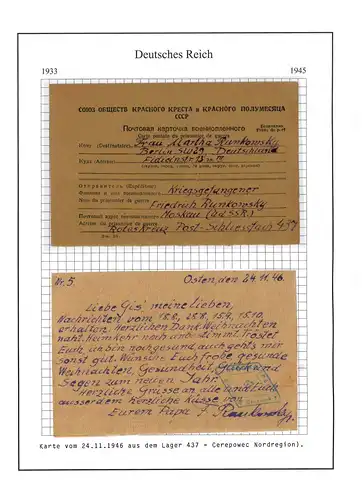 Deutsches Reich
1933
1945
СОЮЗ ОБЩЕСТВ КРАСНОГО КРЕСТА и КРАСНОГО ПОЛУМЕСЯЦА
СССР
Почтовая карточка военнопленного
Carte postale du prisonnier de guerre
Кому (Destinataire) Frau Martha Runkowsky
Berlin SW 29, Deutschland
Куда (Adresse) Fidicinstr.
Отправитель (Expéditeur)
Kriegsgefangener
Nom du prisonnier de guerre Friedrich Runkowsky
Почтовый адрес военнопленного Moskau (UdSSR)
Adresse du prisonnier de guerre
Rotes Kreuz Post-Schliessfach 437
Nr. 5. Osten, den 24.11.46.
Liebe Gis' meine lieben,
Nachrichten vom 18.8., 28.8., 15.9., 15.10.
erhalten. Herzlichen Dank. Weihnachten
naht. Heimkehr noch unbestimmt. Tröstet
Euch, ich bin noch gesund, auch geht's mir
sonst gut. Wünsche Euch frohe, gesunde
Weihnachten, Gesundheit, Glück und
Segen zum neuen Jahr.
Herzliche Grüsse an alle und Euch
ausserdem herzliche Küsse von
Eurem Papa
Karte vom 24.11.1946 aus dem Lager 437 - Cerepowec Nordregion).